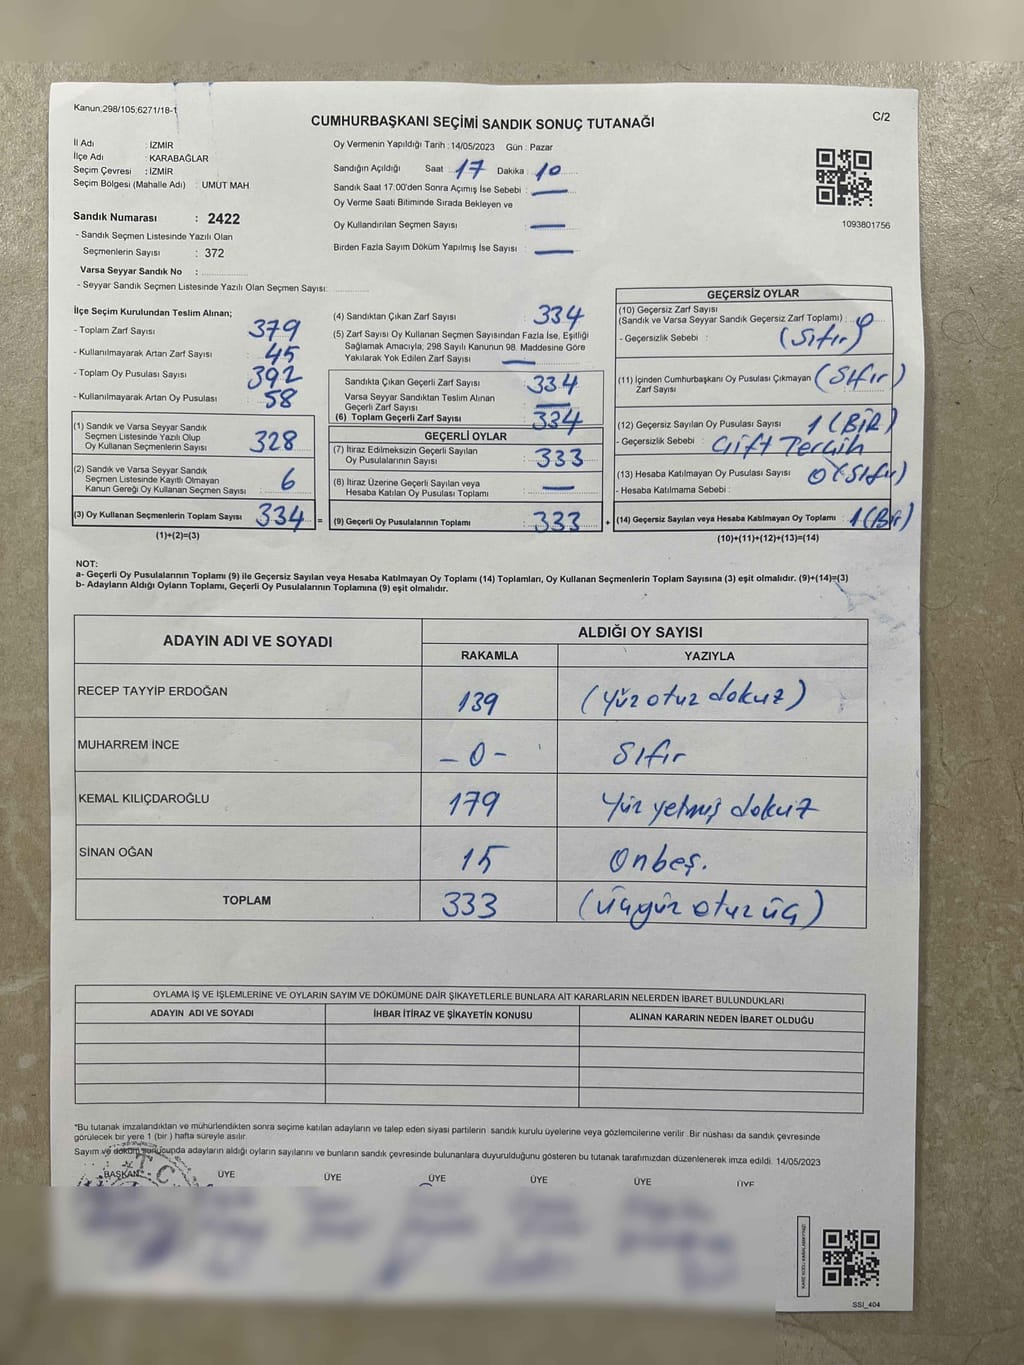 Kanun;298/105;6271/18-1
C/2
CUMHURBAŞKANI SEÇİMİ SANDIK SONUÇ TUTANAĞI
İl Adı : İZMİR
İlçe Adı : KARABAĞLAR
Seçim Çevresi : İZMİR
Seçim Bölgesi (Mahalle Adı) : UMUT MAH
Sandık Numarası : 2422
- Sandık Seçmen Listesinde Yazılı Olan
Seçmenlerin Sayısı : 372
Varsa Seyyar Sandık No :
- Seyyar Sandık Seçmen Listesinde Yazılı Olan Seçmen Sayısı:
Oy Vermenin Yapıldığı Tarih : 14/05/2023 Gün : Pazar
Sandığın Açıldığı Saat : 17 Dakika : 10
Sandık Saat 17:00'den Sonra Açımış İse Sebebi : —
Oy Verme Saati Bitiminde Sırada Bekleyen ve
Oy Kullandırılan Seçmen Sayısı : —
Birden Fazla Sayım Döküm Yapılmış İse Sayısı : —
1093801756
İlçe Seçim Kurulundan Teslim Alınan;
- Toplam Zarf Sayısı : 379
- Kullanılmayarak Artan Zarf Sayısı : 45
- Toplam Oy Pusulası Sayısı : 392
- Kullanılmayarak Artan Oy Pusulası : 58
(1) Sandık ve Varsa Seyyar Sandık
Seçmen Listesinde Yazılı Olup
Oy Kullanan Seçmenlerin Sayısı : 328
(2) Sandık ve Varsa Seyyar Sandık
Seçmen Listesinde Kayıtlı Olmayan
Kanun Gereği Oy Kullanan Seçmen Sayısı : 6
(3) Oy Kullanan Seçmenlerin Toplam Sayısı : 334 =
(1)+(2)=(3)
(4) Sandıktan Çıkan Zarf Sayısı : 334
(5) Zarf Sayısı Oy Kullanan Seçmen Sayısından Fazla İse, Eşitliği
Sağlamak Amacıyla; 298 Sayılı Kanunun 98. Maddesine Göre
Yakılarak Yok Edilen Zarf Sayısı : —
Sandıkta Çıkan Geçerli Zarf Sayısı : 334
Varsa Seyyar Sandıktan Teslim Alınan
Geçerli Zarf Sayısı : —
(6) Toplam Geçerli Zarf Sayısı : 334
GEÇERLİ OYLAR
(7) İtiraz Edilmeksizin Geçerli Sayılan
Oy Pusulalarının Sayısı : 333
(8) İtiraz Üzerine Geçerli Sayılan veya
Hesaba Katılan Oy Pusulası Toplamı : —
(9) Geçerli Oy Pusulalarının Toplamı : 333 +
GEÇERSİZ OYLAR
(10) Geçersiz Zarf Sayısı
(Sandık ve Varsa Seyyar Sandık Geçersiz Zarf Toplamı) : 0
- Geçersizlik Sebebi : (Sıfır)
(11) İçinden Cumhurbaşkanı Oy Pusulası Çıkmayan (Sıfır)
Zarf Sayısı
(12) Geçersiz Sayılan Oy Pusulası Sayısı : 1 (BİR)
- Geçersizlik Sebebi : Çift Tercih
(13) Hesaba Katılmayan Oy Pusulası Sayısı : 0 (Sıfır)
- Hesaba Katılmama Sebebi :
(14) Geçersiz Sayılan veya Hesaba Katılmayan Oy Toplamı : 1 (Bir)
(10)+(11)+(12)+(13)=(14)
NOT:
a- Geçerli Oy Pusulalarının Toplamı (9) ile Geçersiz Sayılan veya Hesaba Katılmayan Oy Toplamı (14) Toplamları, Oy Kullanan Seçmenlerin Toplam Sayısına (3) eşit olmalıdır. (9)+(14)=(3)
b- Adayların Aldığı Oyların Toplamı, Geçerli Oy Pusulalarının Toplamına (9) eşit olmalıdır.
ADAYIN ADI VE SOYADI
ALDIĞI OY SAYISI
RAKAMLA YAZIYLA
RECEP TAYYİP ERDOĞAN 139 (Yüz otuz dokuz)
MUHARREM İNCE -0- Sıfır
KEMAL KILIÇDAROĞLU 179 Yüz yetmiş dokuz
SİNAN OĞAN 15 Onbeş.
TOPLAM 333 (üçyüz otuz üç)
OYLAMA İŞ VE İŞLEMLERİNE VE OYLARIN SAYIM VE DÖKÜMÜNE DAİR ŞİKAYETLERLE BUNLARA AİT KARARLARIN NELERDEN İBARET BULUNDUKLARI
ADAYIN ADI VE SOYADI İHBAR İTİRAZ VE ŞİKAYETİN KONUSU ALINAN KARARIN NEDEN İBARET OLDUĞU
*Bu tutanak imzalandıktan ve mühürlendikten sonra seçime katılan adayların ve talep eden siyasi partilerin sandık kurulu üyelerine veya gözlemcilerine verilir .Bir nüshası da sandık çevresinde
görülecek bir yere 1 (bir ) hafta süreyle asılır.
Sayım ve döküm sonucunda adayların aldığı oyların sayılarını ve bunların sandık çevresinde bulunanlara duyurulduğunu gösteren bu tutanak tarafımızdan düzenlenerek imza edildi. 14/05/2023
T.C
BAŞKAN ÜYE ÜYE ÜYE ÜYE ÜYE ÜYE
SSI_404